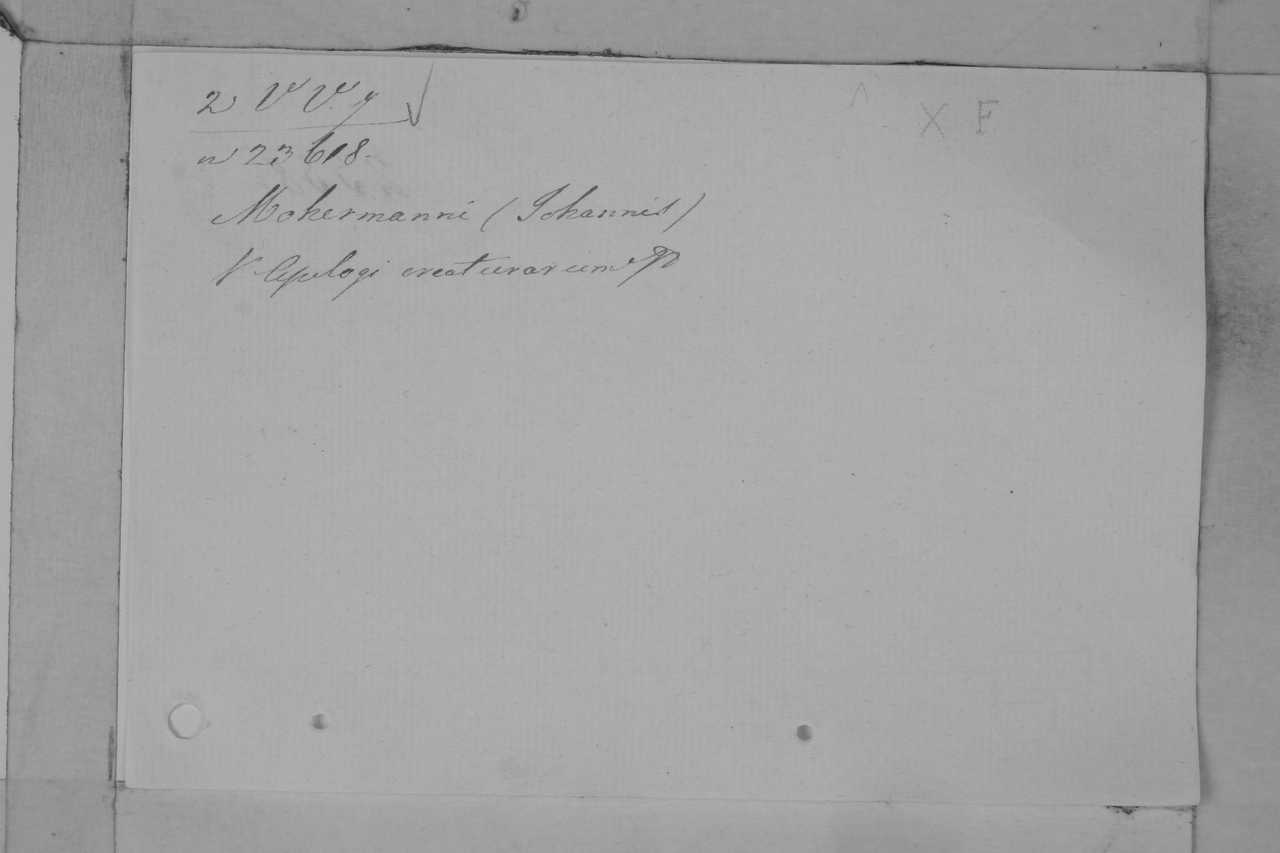 X F
n 23618.
Mohermanni (Johannis)
V Apologi creaturarum